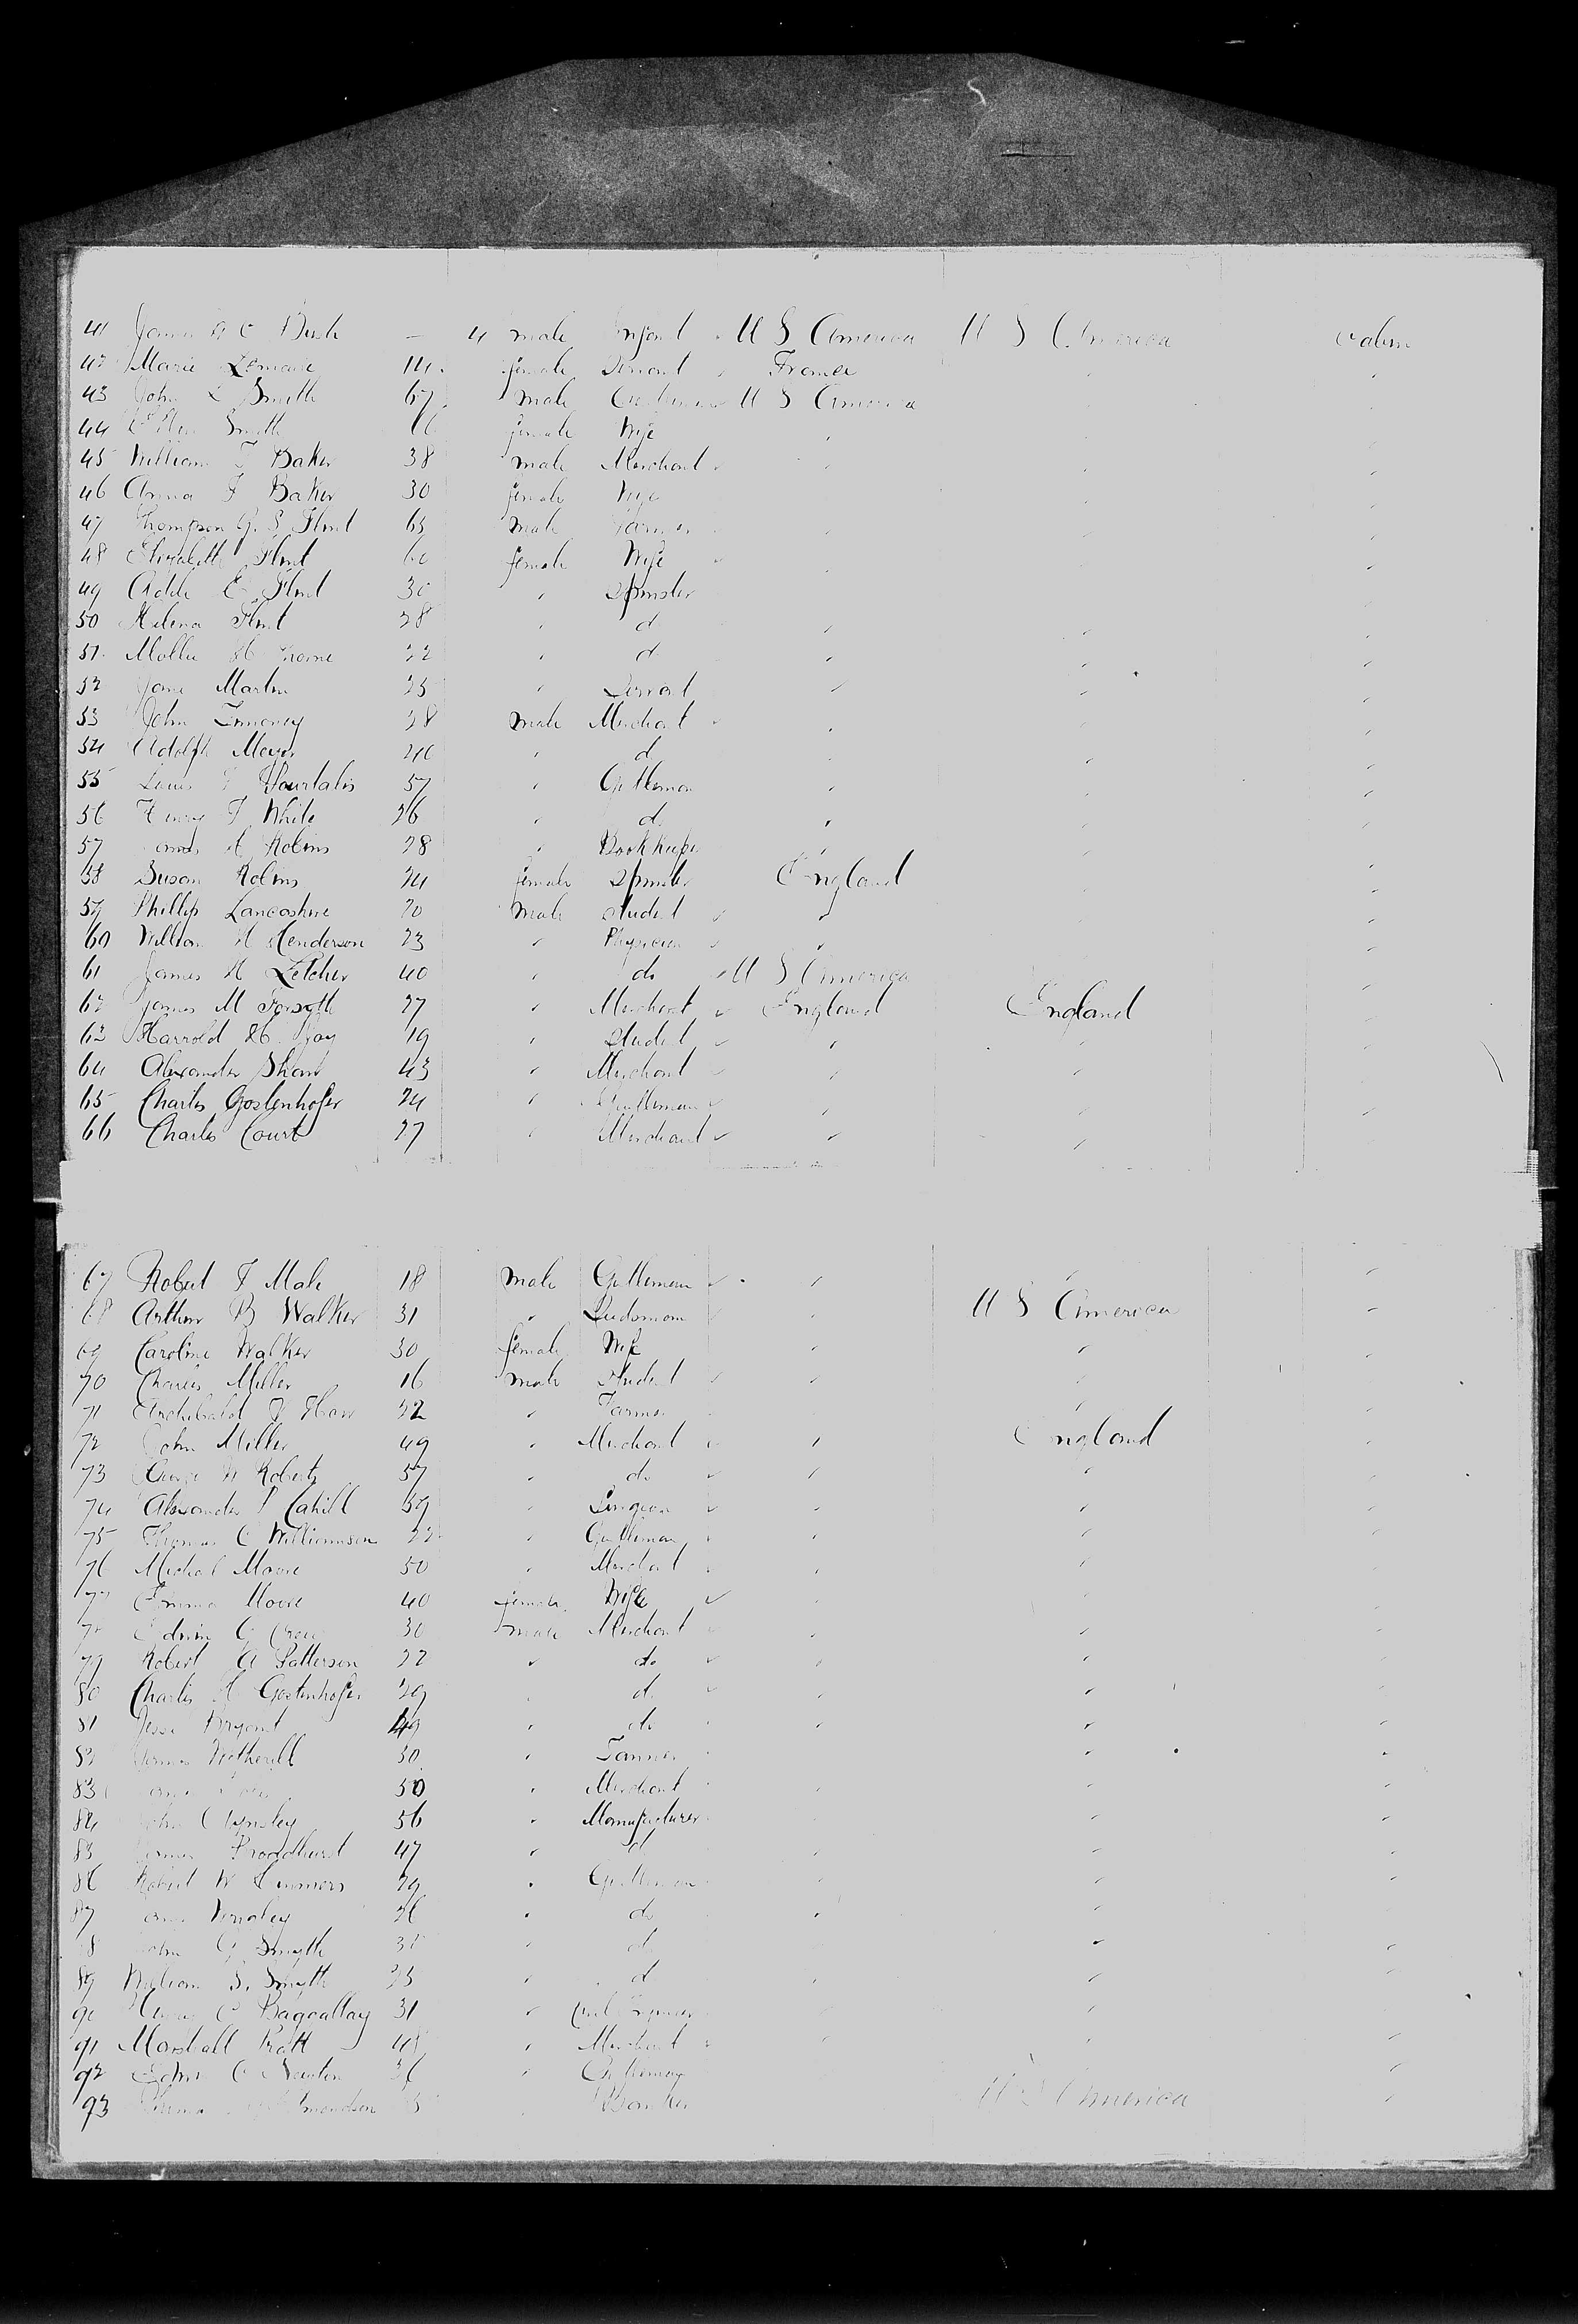 41 James A C Bush — 4 male Infant U S America U S America Cabin
42 Marie Lemaire 14 female Servant France
43 John L Smith 67 male Gentleman U S America
44 Smith female Wife
45 William T Baker 38 male Merchant
46 Anna F Baker 30 female Wife
47 Thompson G. S. Flint 65 male
48 Elizabeth Flint 60 female Wife
49 Addie E. Flint 30 " Spinster
50 Helena Flint 28 " do
51 Mollie 22 " do
52 Jane Martin 25 " Servant
53 John 28 male Merchant
54 Adolph Meyer 40 " do
55 Louis Pourtales 57 " Gentleman
56 Henry F White 26 " do
57 A Robins 28 " Bookkeeper
58 Susan Robins 24 female Spinster England
59 Phillip Lancashire 20 male Student
60 William H Henderson 23 " Physician
61 James H Letcher 40 " do U S America
62 James M Forsyth 27 " Merchant England England
63 Harrold H. Jay 19 " Student
64 Alexander Shaw 43 " Merchant
65 Charles Gostenhofer 24 " Gentleman
66 Charles Court 27 " Merchant
67 Robert F Male 18 male Gentleman
68 Arthur B Walker 31 " U S America
69 Caroline Walker 30 female Wife
70 Charles Miller 16 male Student
71 Archibald 22 " Farmer
72 John Miller 49 " Merchant England
73 George W Roberts 57 " do
74 Alexander P Cahill 59 " Surgeon
75 Thomas C Williamson 22 " Gentleman
76 Michael Moore 50 " Merchant
77 Emma Moore 40 female Wife
78 Edwin 30 male Merchant
79 Robert A Patterson 22 " do
80 Charles H Gostenhofer 29 " do
81 Jesse Bryant 49 " do
82 James Wetherill 30 " Tanner
83 50 " Merchant
84 John 56 " Manufacturer
85 James Broadhurst 47 " do
86 Robert W 29 " Gentleman
87 26 " do
88 John G Smyth " do
89 William S. Smyth " do
90 C Baggallay 31 " Civil Engineer
91 Marshall Pratt " Merchant
92 Edwin C Newton " Gentleman
93 Banker U S America